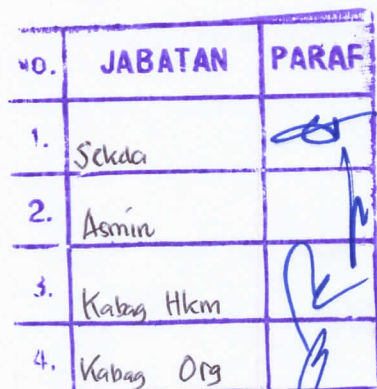 NO. JABATAN PARAF
1. Sekda
2. Asmin
3. Kabag Hkm
4. Kabag Org